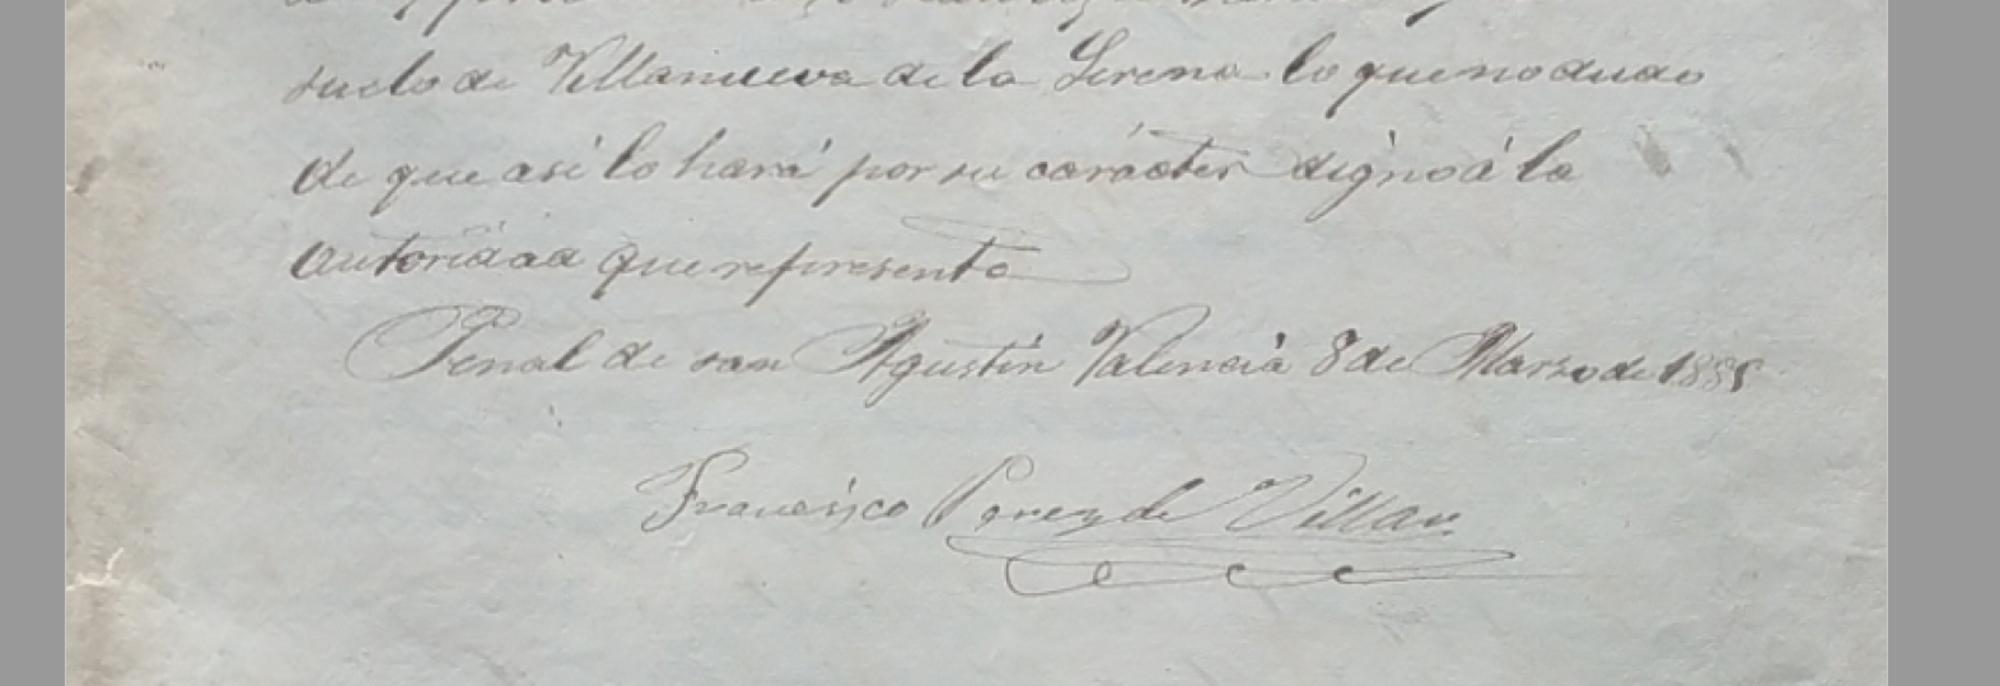 suelo de Villanueva de la Serena lo que no dudo
de que asi lo hará por su carácter digno á la
autoridad que representa
Penal de san Agustin Valencia 8 de Marzo de 1885
Francisco Perez de Villar